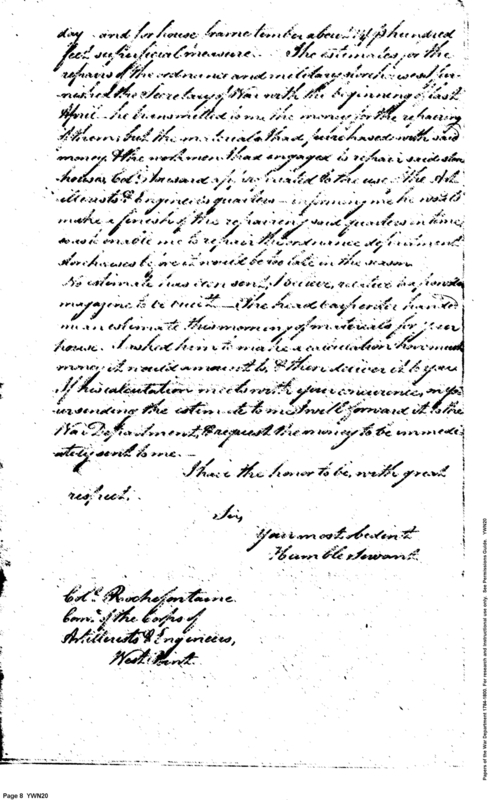 day and for house frame timber about hundred
feet superficial measure. The estimates for the
repairs of the ordnance and military storehouses I fur-
nished the Secretary of War with the beginning of last
April he transmitted to me the money for the repairing
of them but the materials I had purchased with said
money, & the workmen I had engaged to repair said store
houses, Colo. appropriated to the use of the Art-
illerists & Engineers quarters informing me he would
make a finish of the repairing said quarters in time
so as to enable me to repair the ordnance department
storehouses before it would be too late in the season
No estimate has been sent, I believe, for a powder
magazine to be built — The head carpenter handed
me an estimate this morning of materials for your
house. I asked him to make a calculation how much
money it would amount to, & then deliver it to you
If his calculation meets with your concurrence, on yo
ur sending the estimate to me I will forward it to the
War Department, & request the money to be immedi
ately sent to me. —
I have the honor to be, with great
respect.
Sir,
Your most obedient
Humble Servant
Colo. Rochefontaine
Com. of the Corps of
Artillerists & Engineers,
West Point
Page 8 YWN20
Papers of the War Department 1784-1800. For research and instructional use only. See Permissions Guide. YWN20